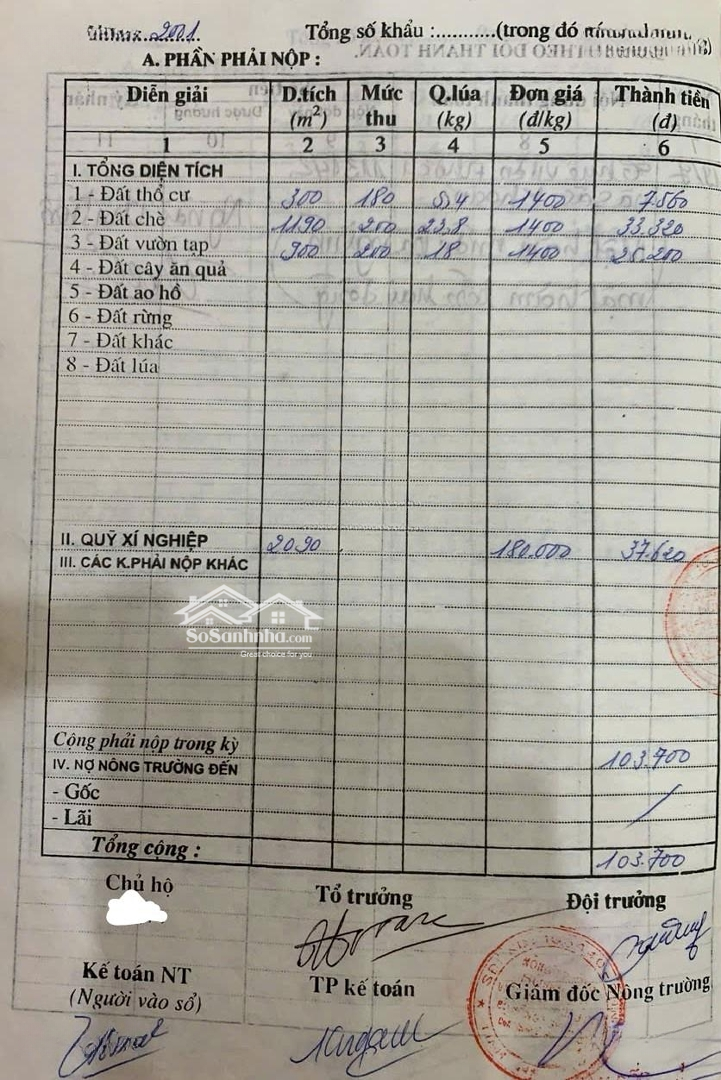 2001 Tổng số khẩu :...........(trong đó
A. PHẦN PHẢI NỘP :
Diễn giải D.tích (m²) Mức thu Q.lúa (kg) Đơn giá (đ/kg) Thành tiền (đ)
1 2 3 4 5 6
I. TỔNG DIỆN TÍCH
1 - Đất thổ cư 300 180 5,4 1400 7.560
2 - Đất chè 1190 200 23,8 1400 33.320
3 - Đất vườn tạp 900 200 18 1400 25.200
4 - Đất cây ăn quả
5 - Đất ao hồ
6 - Đất rừng
7 - Đất khác
8 - Đất lúa
II. QUỸ XÍ NGHIỆP 2090 180.000 37.620
III. CÁC K.PHẢI NỘP KHÁC
SoSanhnha.com
Great choice for you
Cộng phải nộp trong kỳ 103.700
IV. NỢ NÔNG TRƯỜNG ĐẾN
- Gốc
- Lãi
Tổng cộng : 103.700
Chủ hộ Tổ trưởng Đội trưởng
Kế toán NT TP kế toán Giám đốc Nông trường
(Người vào sổ)